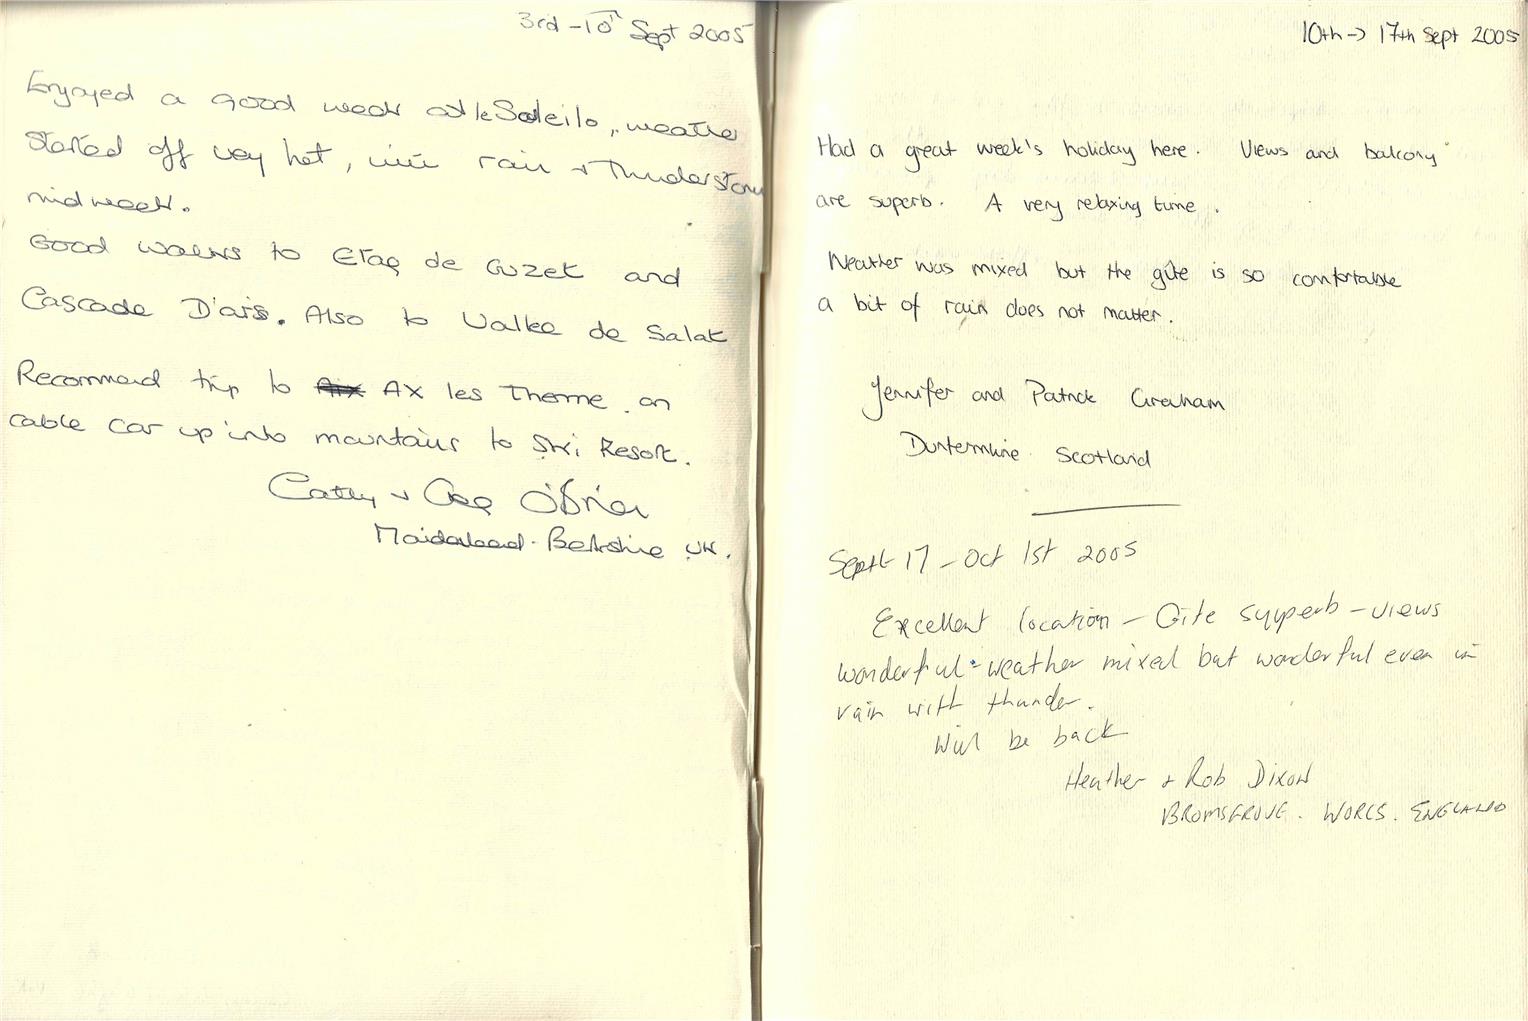 3rd - 10th Sept 2005
Enjoyed a good week at le Soleilo, weather
started off very hot, with rain + Thunderstorm
midweek.
Good walks to Etag de Guzet and
Cascade D'ars. Also to Vallee de Salat
Recommend trip to Aix AX les Therme. on
cable car up into mountains to Ski Resort.
Cathy + O'Brien
Maidenhead. Berkshire UK.
10th -> 17th Sept 2005
Had a great week's holiday here. Views and balcony
are superb. A very relaxing time.
Weather was mixed but the gîte is so comfortable
a bit of rain does not matter.
Jennifer and Patrick Graham
Dunfermline. Scotland
Sept 17 - Oct 1st 2005
Excellent location - Gite supperb - views
wonderful - weather mixed but wonderful even in
rain with thunder.
Will be back
Heather + Rob Dixon
BROMSGROVE. WORCS. ENGLAND